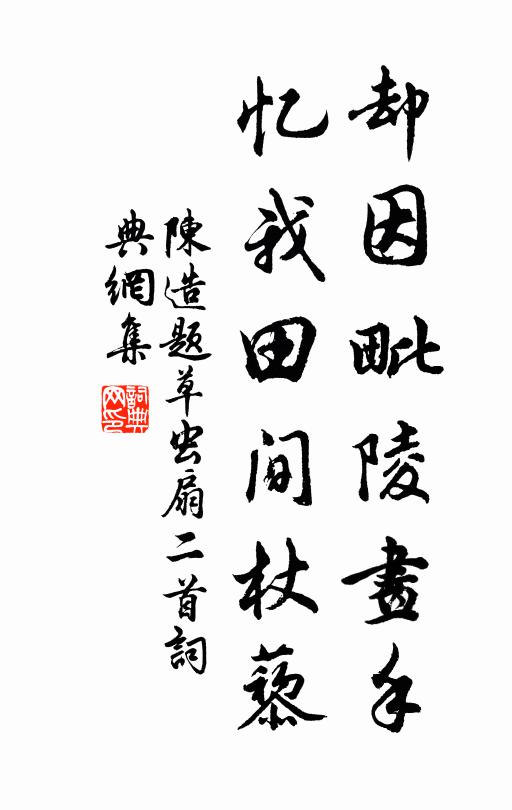 却因毗陵畫手
忆我田间杖藜
陳造題草虫扇二首詞
典網集
詞典網印